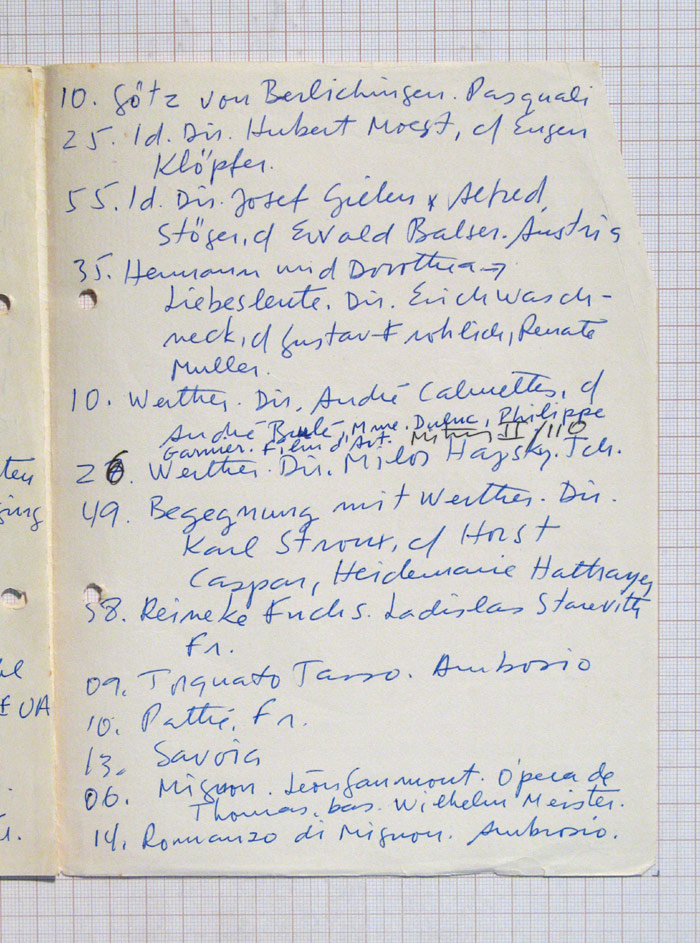 10. Götz von Berlichingen. Pasquali
25. Id. Dir. Hubert Moest, c/ Eugen
Klöpfer.
55. Id. Dir. Josef Gielen & Alfred
Stöger, c/ Ewald Balser. Austria
35. Hermann und Dorothea →
Liebesleute. Dir. Erich Wasch-
neck, c/ Gustav Frohlich, Renate
Muller.
10. Werther. Dir. André Calmettes, c/
André Brulé, Mme. Dulac, Philippe
Garnier. Film d'Art. Mitry II/110
26. Werther. Dir. Milos Hajsky. Tch.
49. Begegnung mit Werther. Dir.
Karl Stroux, c/ Horst
Caspar, Heidemarie Hatheyer
58. Reineke Fuchs. Ladislas Starevitch
Fr.
09. Torquato Tasso. Ambrosio
10. Pathé, Fr.
13. Savoia
06. Mignon. Léon Gaumont. Ópera de
Thomas, bas. Wilhelm Meister.
14. Romanzo di Mignon. Ambrosio.
ten
ing
EUA